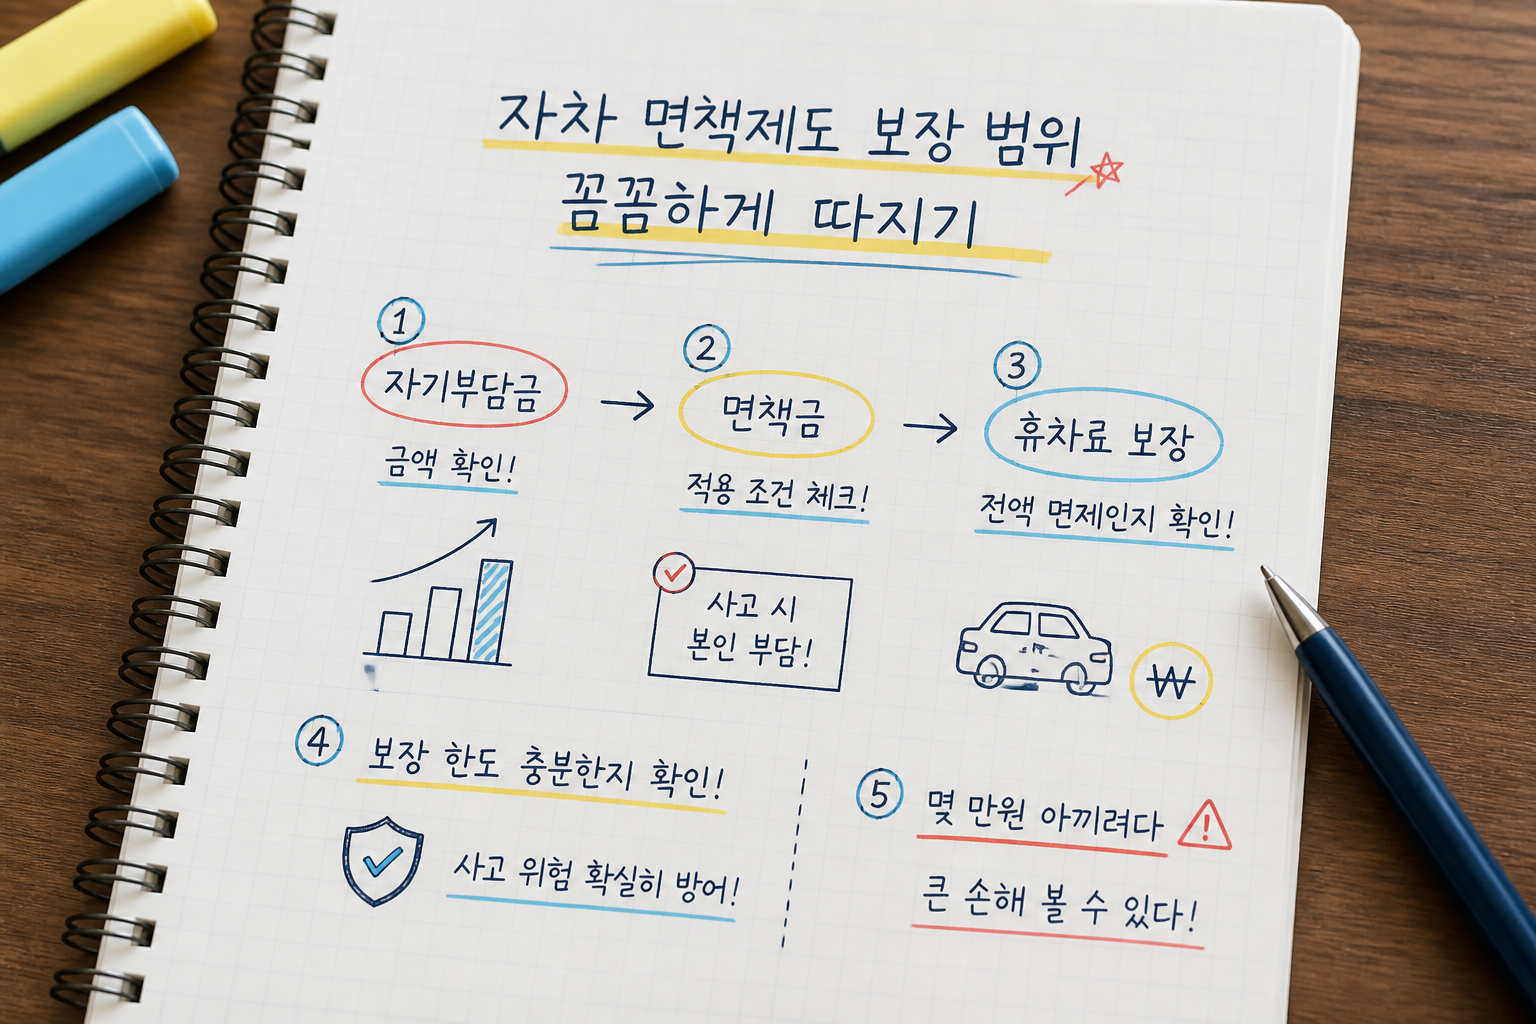 자차 면책제도 보장 범위
꼼꼼하게 따지기
1
자기부담금
금액 확인!
2
면책금
적용 조건 체크!
사고 시
본인 부담!
3
휴차료 보장
전액 면제인지 확인!
₩
4
보장 한도 충분한지 확인!
사고 위험 확실히 방어!
5
몇 만원 아끼려다
큰 손해 볼 수 있다!